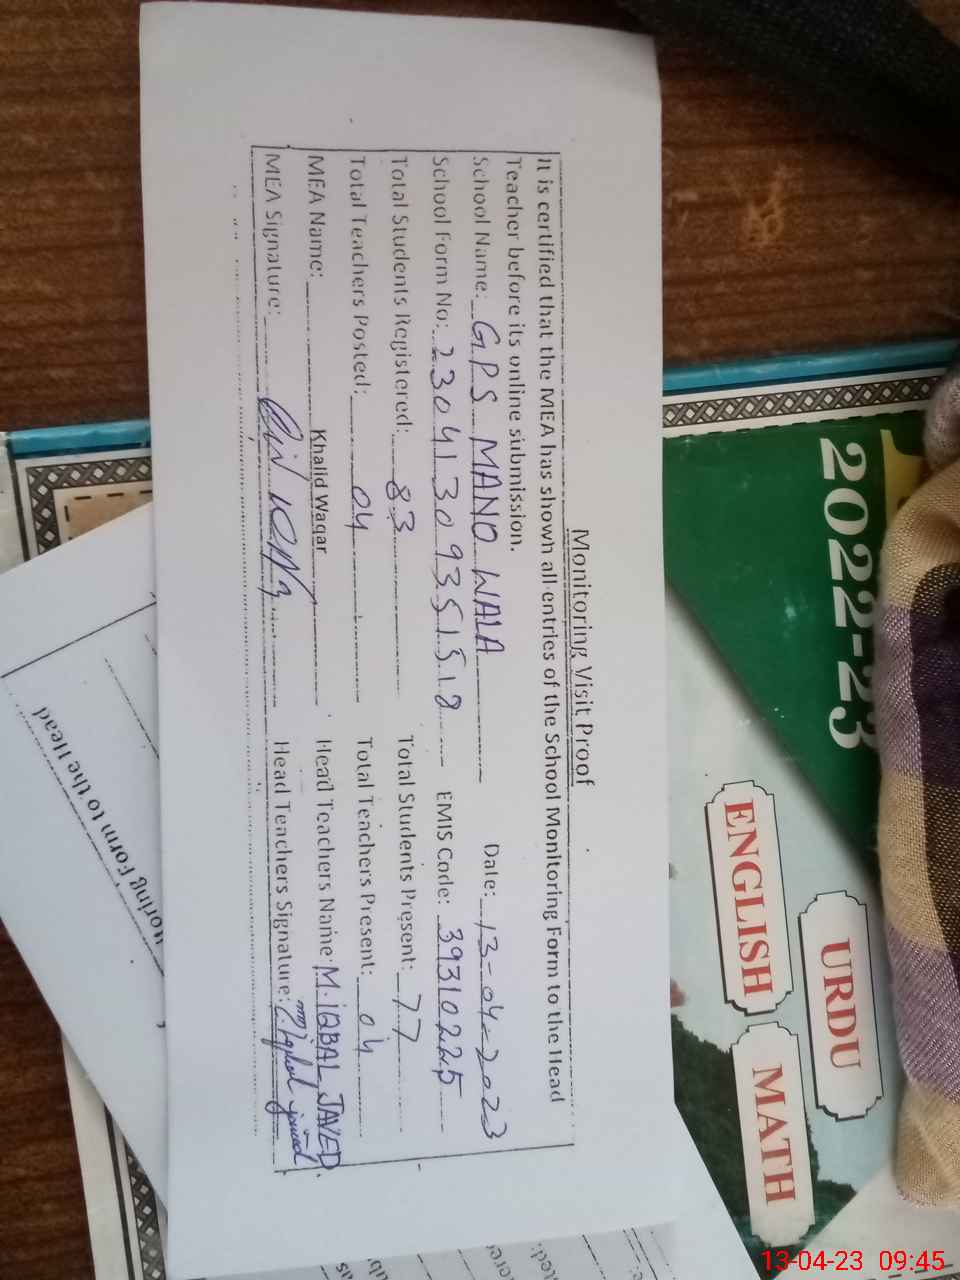 Monitoring Visit Proof
It is certified that the MEA has shown all entries of the School Monitoring Form to the Head
Teacher before its online submission.
School Name: G.P.S MANO WALA Date: 13-04-2023
School Form No: 23041309351518 EMIS Code: 39310225
Total Students Registered: 83 Total Students Present: 77
Total Teachers Posted: 04 Total Teachers Present: 04
MEA Name: Khalid Waqar Head Teachers Name: M. IQBAL JAVED.
MEA Signature: Head Teachers Signature:
2022-23
URDU
ENGLISH
MATH
toring Form to the Head
13-04-23 09:45